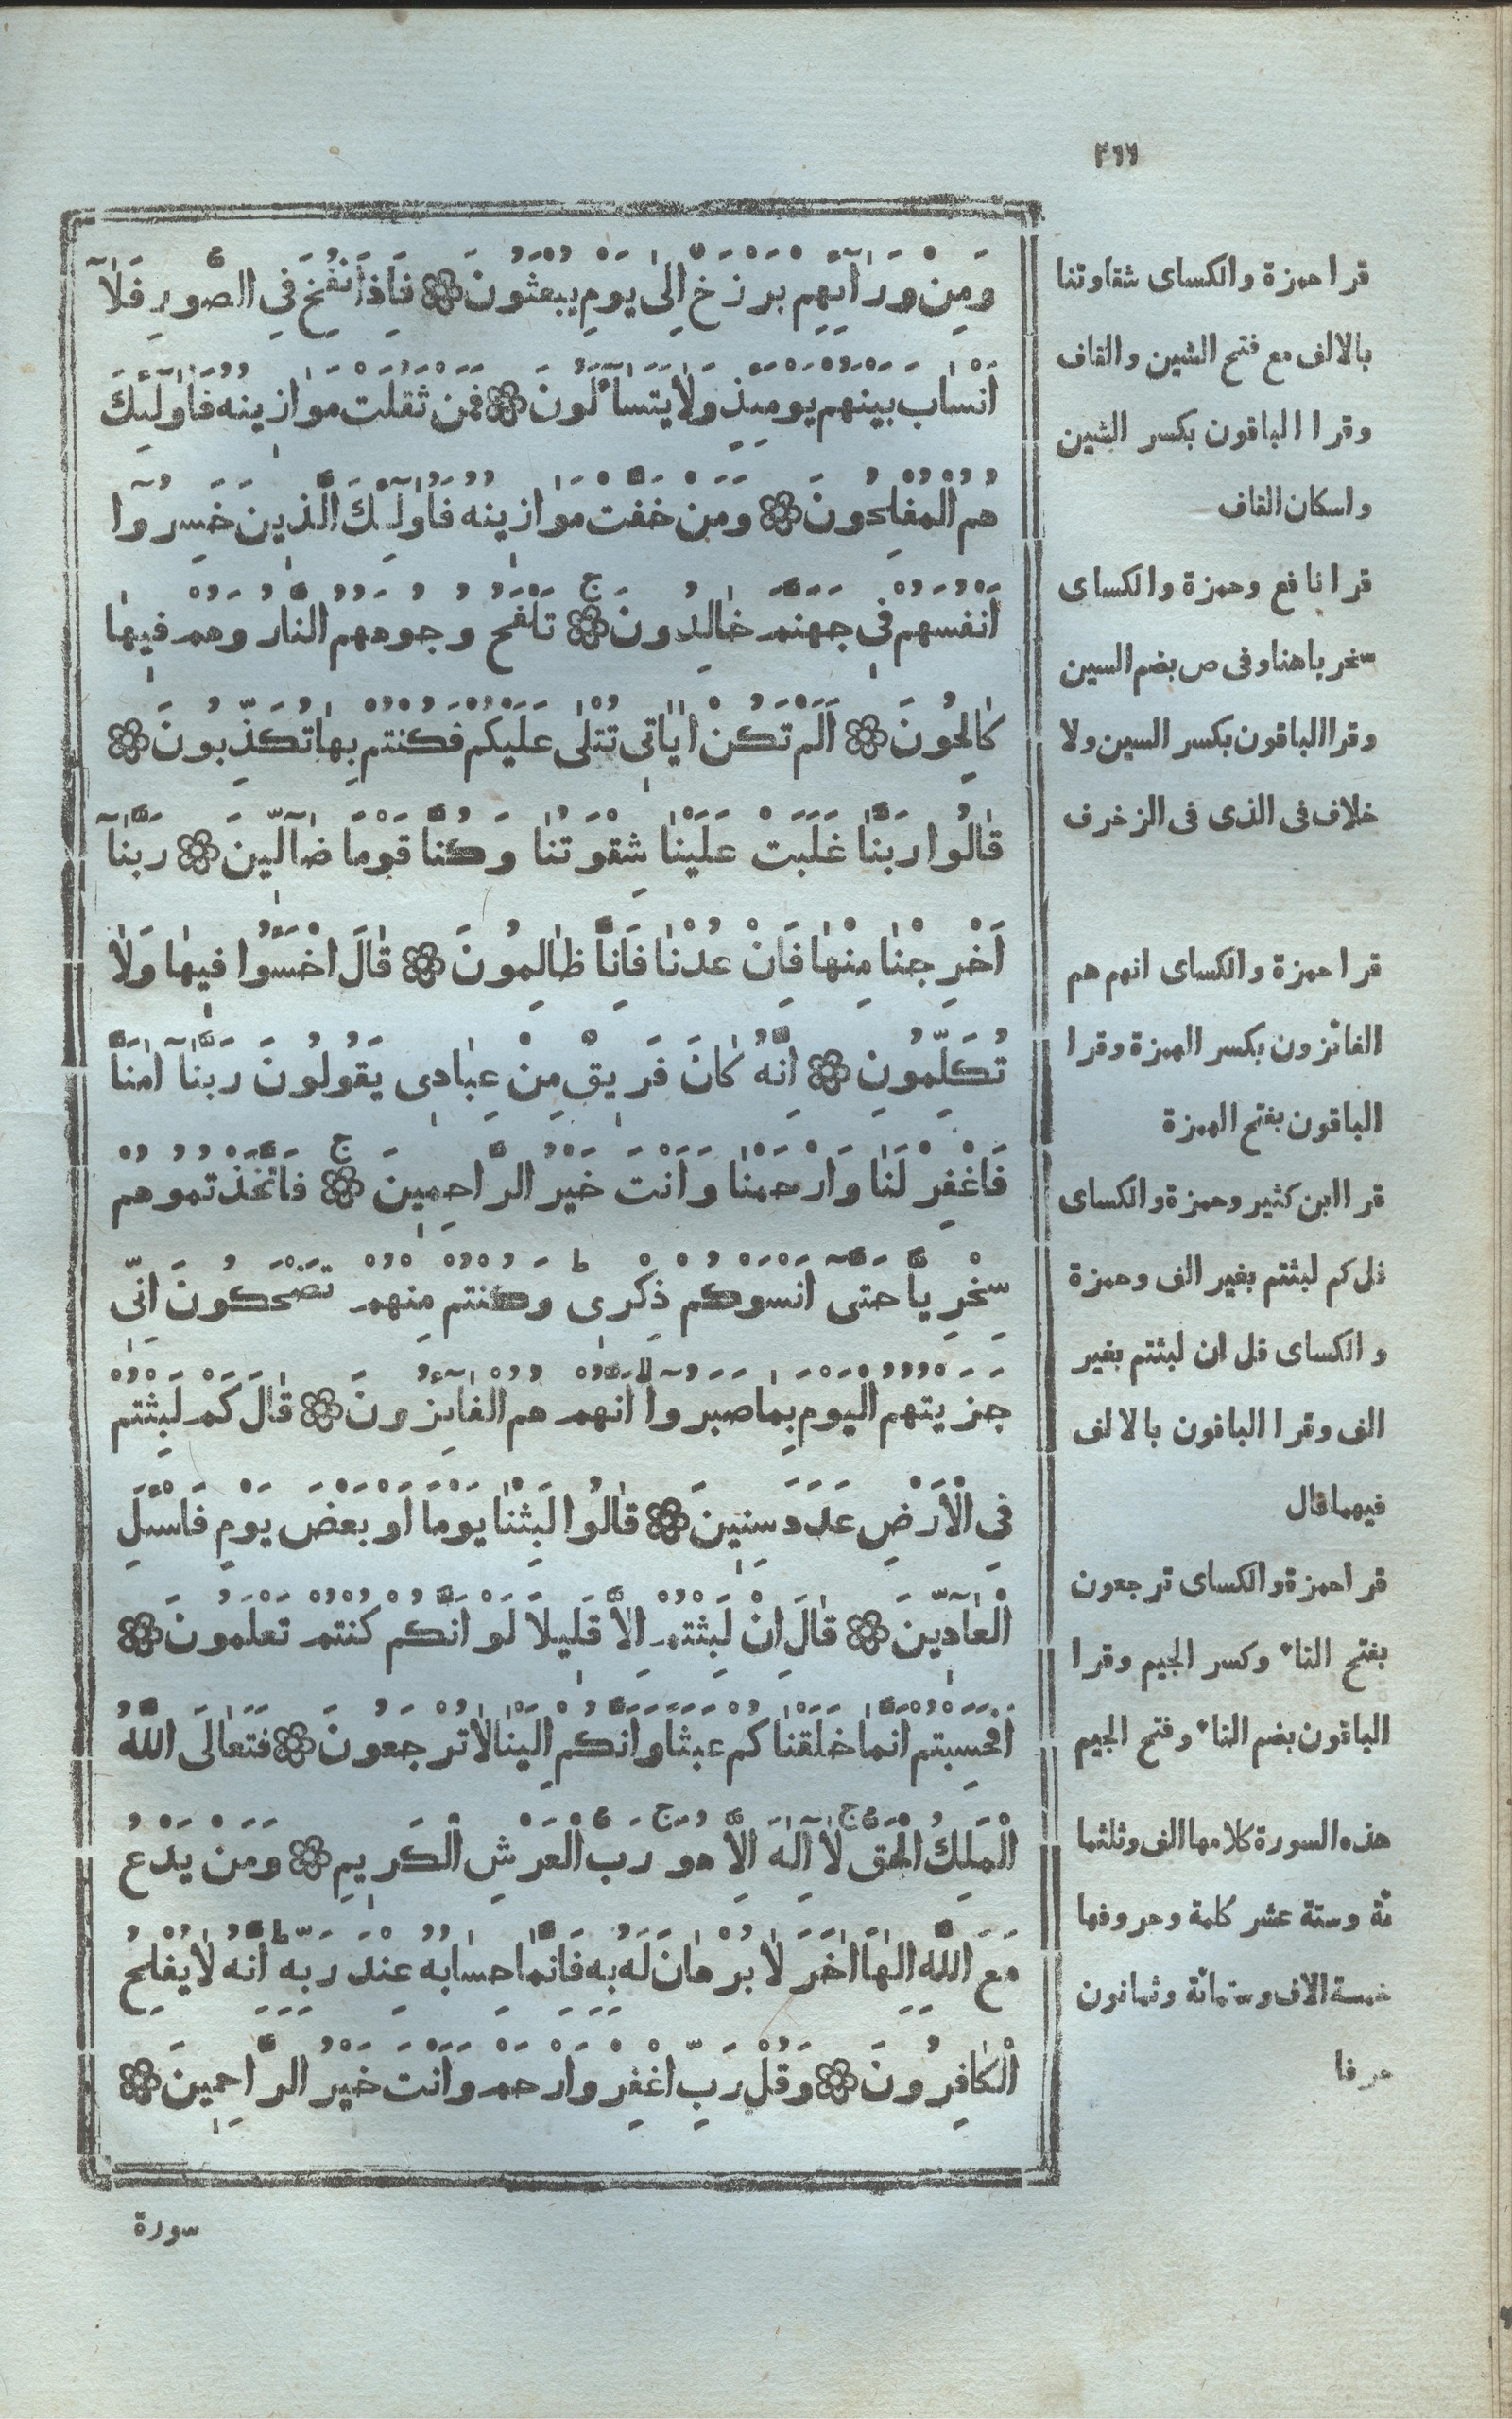 ٣٦٦
وَمِنْ وَرَآئِهِمْ بَرْزَخٌ اِلٰى يَوْمِ يُبْعَثُونَ ۝ فَاِذَا نُفِخَ فِى الصُّورِ فَلَآ
اَنْسَابَ بَيْنَهُمْ يَوْمَئِذٍ وَلَا يَتَسَآءَلُونَ ۝ فَمَنْ ثَقُلَتْ مَوَازِينُهُ فَاُولٰٓئِكَ
هُمُ الْمُفْلِحُونَ ۝ وَمَنْ خَفَّتْ مَوَازِينُهُ فَاُولٰٓئِكَ الَّذِينَ خَسِرُوٓا
اَنْفُسَهُمْ فِى جَهَنَّمَ خَالِدُونَ ۝ ج تَلْفَحُ وُجُوهَهُمُ النَّارُ وَهُمْ فِيهَا
كَالِحُونَ ۝ اَلَمْ تَكُنْ اٰيَاتِى تُتْلٰى عَلَيْكُمْ فَكُنْتُمْ بِهَا تُكَذِّبُونَ ۝
قَالُوا رَبَّنَا غَلَبَتْ عَلَيْنَا شِقْوَتُنَا وَكُنَّا قَوْمًا ضَآلِّينَ ۝ رَبَّنَآ
اَخْرِجْنَا مِنْهَا فَاِنْ عُدْنَا فَاِنَّا ظَالِمُونَ ۝ قَالَ اخْسَؤُا فِيهَا وَلَا
تُكَلِّمُونِ ۝ اِنَّهُ كَانَ فَرِيقٌ مِنْ عِبَادِى يَقُولُونَ رَبَّنَآ اٰمَنَّا
فَاغْفِرْ لَنَا وَارْحَمْنَا وَاَنْتَ خَيْرُ الرَّاحِمِينَ ۝ ج فَاتَّخَذْتُمُوهُمْ
سِخْرِيًّا حَتّٰٓى اَنْسَوْكُمْ ذِكْرِى ط وَكُنْتُمْ مِنْهُمْ تَضْحَكُونَ اِنِّى
جَزَيْتُهُمُ الْيَوْمَ بِمَا صَبَرُوٓا لا اَنَّهُمْ هُمُ الْفَآئِزُونَ ۝ قَالَ كَمْ لَبِثْتُمْ
فِى الْاَرْضِ عَدَدَ سِنِينَ ۝ قَالُوا لَبِثْنَا يَوْمًا اَوْ بَعْضَ يَوْمٍ فَاسْئَلِ
الْعَآدِّينَ ۝ قَالَ اِنْ لَبِثْتُمْ اِلَّا قَلِيلًا لَوْ اَنَّكُمْ كُنْتُمْ تَعْلَمُونَ ۝
اَفَحَسِبْتُمْ اَنَّمَا خَلَقْنَاكُمْ عَبَثًا وَاَنَّكُمْ اِلَيْنَا لَا تُرْجَعُونَ ۝ فَتَعَالَى اللّٰهُ
الْمَلِكُ الْحَقُّ ج لَآ اِلٰهَ اِلَّا هُوَ ج رَبُّ الْعَرْشِ الْكَرِيمِ ۝ وَمَنْ يَدْعُ
مَعَ اللّٰهِ اِلٰهًا اٰخَرَ لَا بُرْهَانَ لَهُ بِهِ فَاِنَّمَا حِسَابُهُ عِنْدَ رَبِّهِ ط اِنَّهُ لَا يُفْلِحُ
الْكَافِرُونَ ۝ وَقُلْ رَبِّ اغْفِرْ وَارْحَمْ وَاَنْتَ خَيْرُ الرَّاحِمِينَ ۝
سورة
قرا حمزة والكساى شقاوتنا
بالالف مع فتح الشين والقاف
وقرا الباقون بكسر الشين
واسكان القاف
قرا نافع وحمزة والكساى
سخريا هنا وفى ص بضم السين
وقرا الباقون بكسر السين ولا
خلاف فى الذى فى الزخرف
قرا حمزة والكساى انهم هم
الفائزون بكسر الهمزة وقرا
الباقون بفتح الهمزة
قرا ابن كثير وحمزة والكساى
قل كم لبثتم بغير الف وحمزة
والكساى قل ان لبثتم بغير
الف وقرا الباقون بالالف
فيهما قال
قرا حمزة والكساى ترجعون
بفتح التاء وكسر الجيم وقرا
الباقون بضم التاء وفتح الجيم
هذه السورة كلامها الف وثلثما
ئة وستة عشر كلمة وحروفها
خمسة الاف وستمائة وثمانون
حرفا